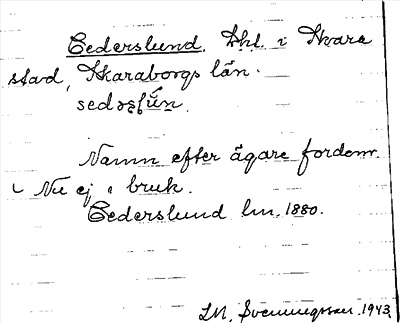 Cederslund. Lht. i Skara
stad, Skaraborgs län.
sedəṣḷún.
Namn efter ägare fordom.
Nu ej i bruk.
Cederslund lm. 1880.
LM. Svenningsson. 1943.